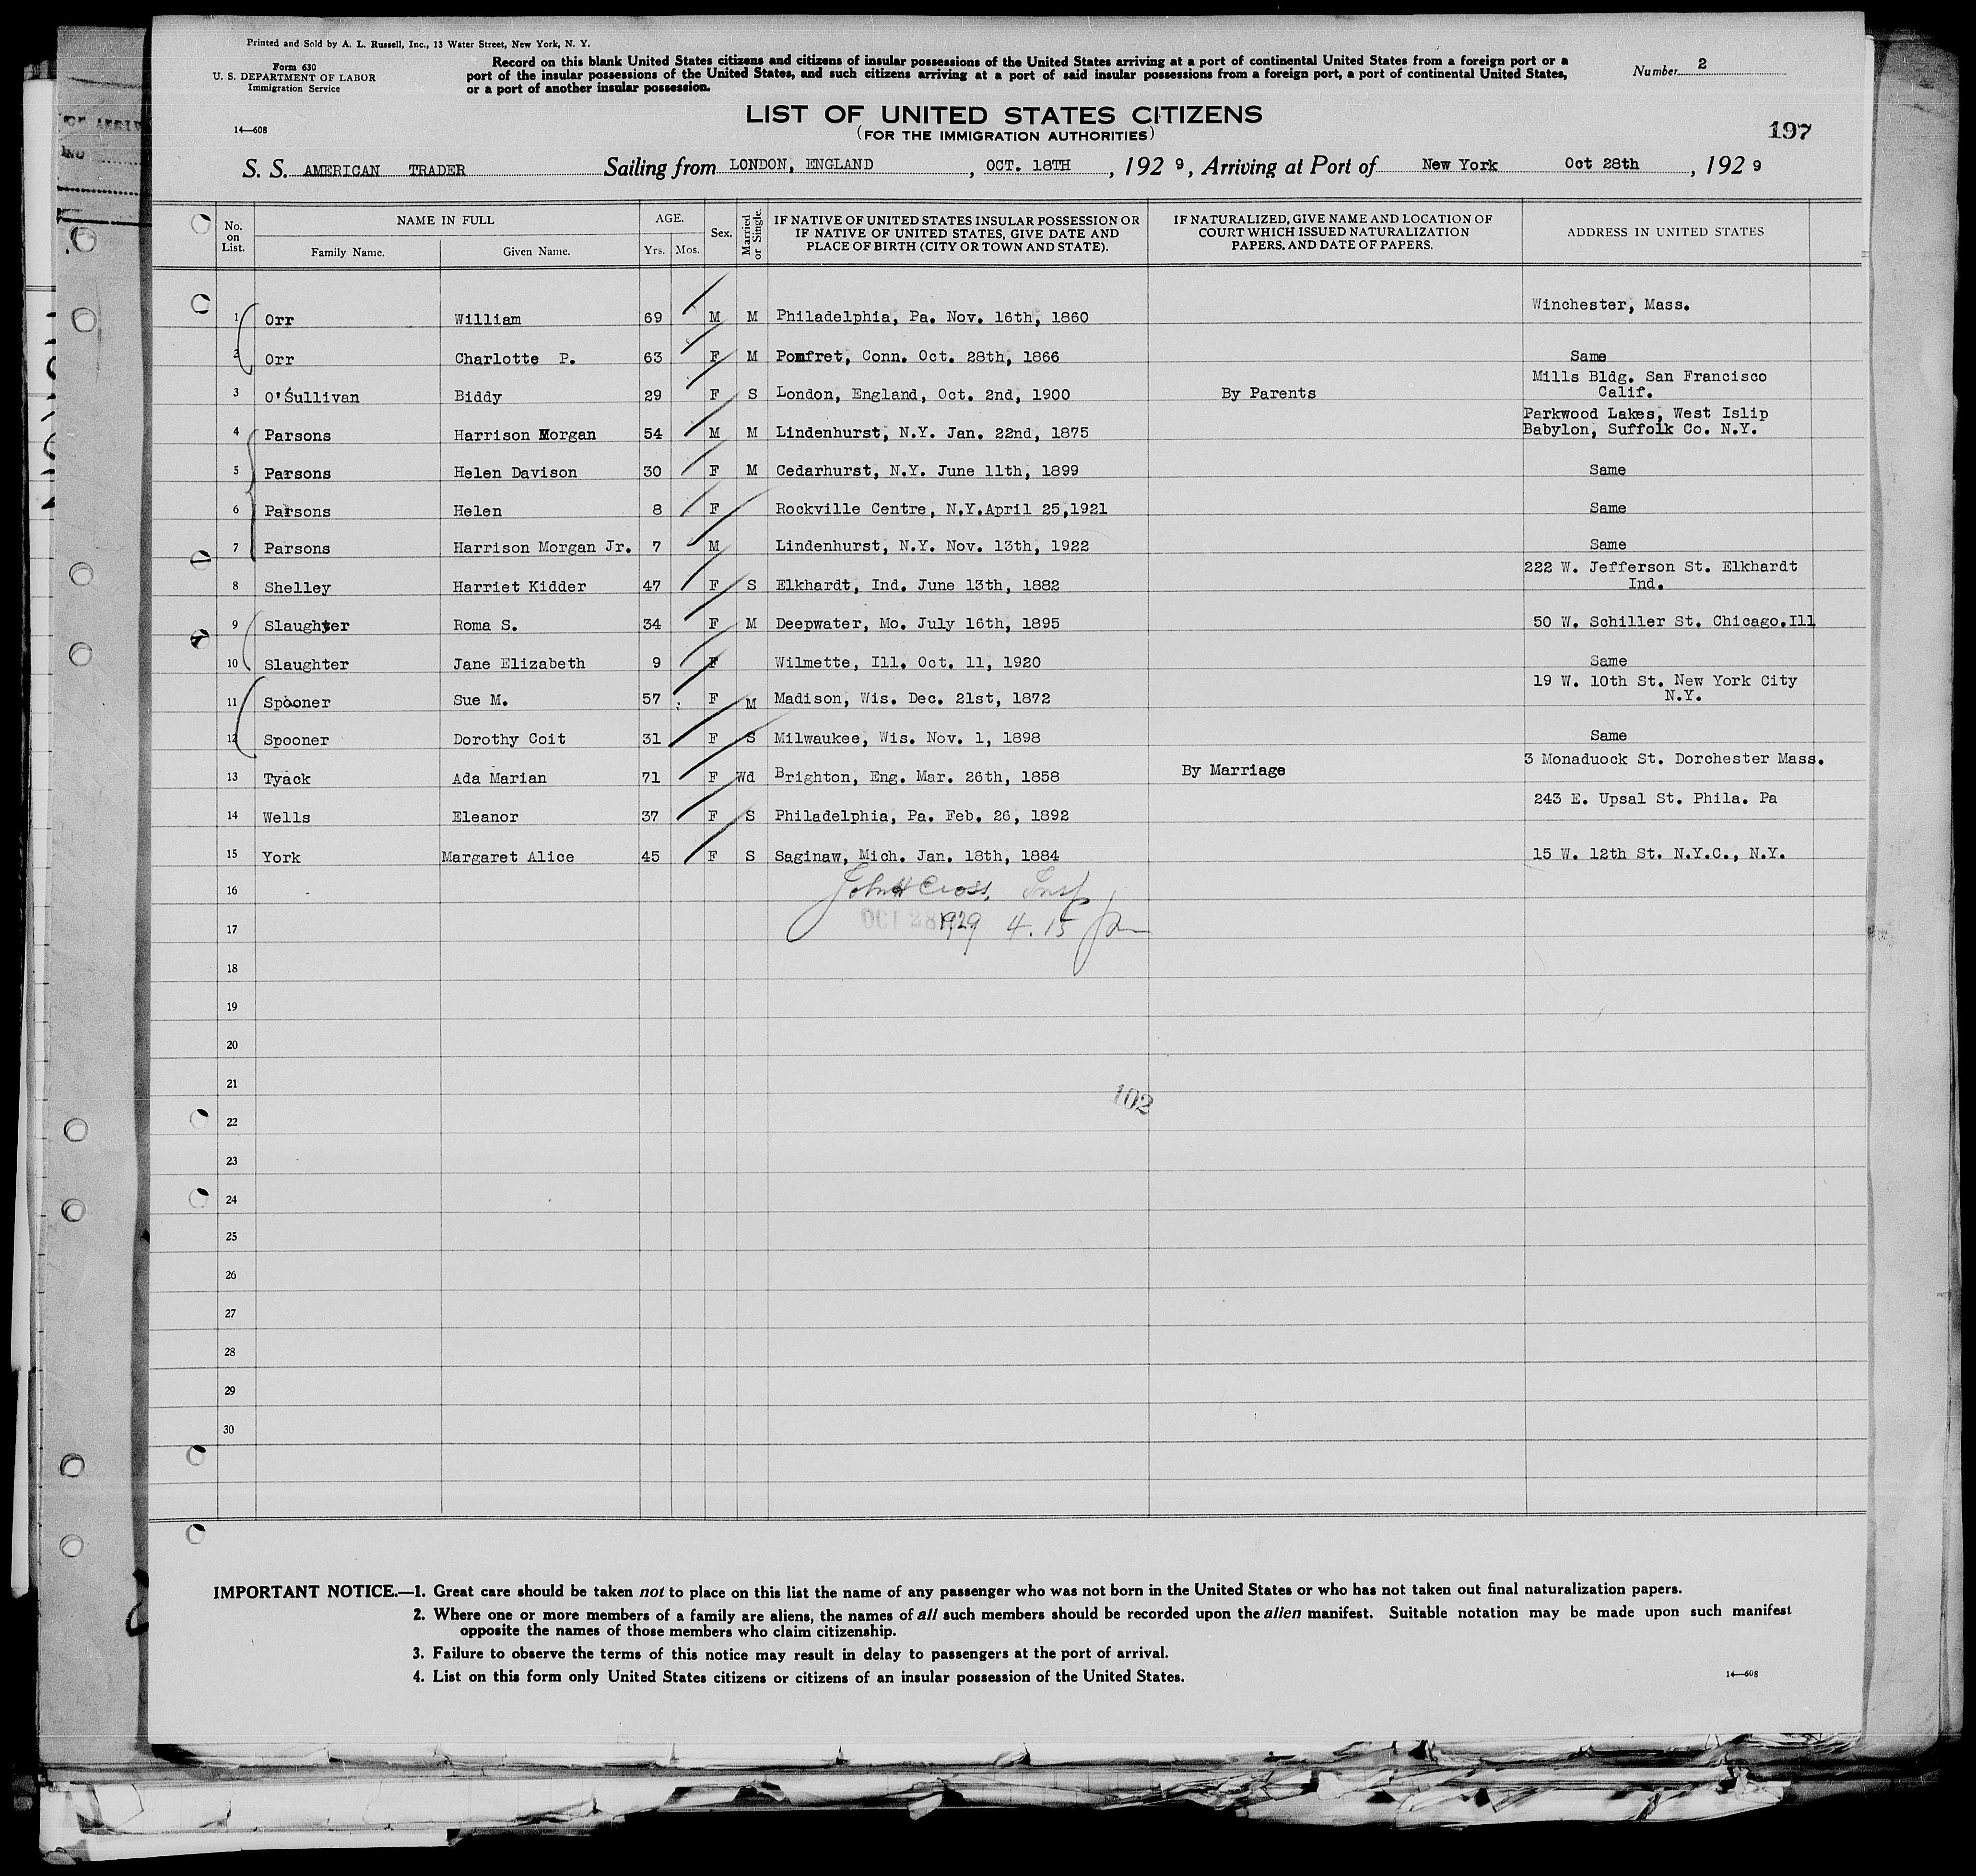 Printed and Sold by A. L. Russell, Inc., 13 Water Street, New York, N. Y.
Form 630
U. S. DEPARTMENT OF LABOR
Immigration Service
14—608
Record on this blank United States citizens and citizens of insular possessions of the United States arriving at a port of continental United States from a foreign port or a
port of the insular possessions of the United States, and such citizens arriving at a port of said insular possessions from a foreign port, a port of continental United States,
or a port of another insular possession.
Number 2
LIST OF UNITED STATES CITIZENS
(FOR THE IMMIGRATION AUTHORITIES)
197
S. S. AMERICAN TRADER Sailing from LONDON, ENGLAND, OCT. 18TH, 1929, Arriving at Port of New York Oct 28th, 1929
No. on List. NAME IN FULL AGE. Sex. Married or Single. IF NATIVE OF UNITED STATES INSULAR POSSESSION OR IF NATIVE OF UNITED STATES, GIVE DATE AND PLACE OF BIRTH (CITY OR TOWN AND STATE). IF NATURALIZED, GIVE NAME AND LOCATION OF COURT WHICH ISSUED NATURALIZATION PAPERS, AND DATE OF PAPERS. ADDRESS IN UNITED STATES
Family Name. Given Name. Yrs. Mos.
1 Orr William 69 M M Philadelphia, Pa. Nov. 16th, 1860 Winchester, Mass.
2 Orr Charlotte P. 63 F M Pomfret, Conn. Oct. 28th, 1866 Same
3 O'Sullivan Biddy 29 F S London, England, Oct. 2nd, 1900 By Parents Mills Bldg. San Francisco Calif.
4 Parsons Harrison Morgan 54 M M Lindenhurst, N.Y. Jan. 22nd, 1875 Parkwood Lakes, West Islip Babylon, Suffolk Co. N.Y.
5 Parsons Helen Davison 30 F M Cedarhurst, N.Y. June 11th, 1899 Same
6 Parsons Helen 8 F Rockville Centre, N.Y.April 25,1921 Same
7 Parsons Harrison Morgan Jr. 7 M Lindenhurst, N.Y. Nov. 13th, 1922 Same
8 Shelley Harriet Kidder 47 F S Elkhardt, Ind. June 13th, 1882 222 W. Jefferson St. Elkhardt Ind.
9 Slaughter Roma S. 34 F M Deepwater, Mo. July 16th, 1895 50 W. Schiller St. Chicago.Ill
10 Slaughter Jane Elizabeth 9 F Wilmette, Ill. Oct. 11, 1920 Same
11 Spooner Sue M. 57 F M Madison, Wis. Dec. 21st, 1872 19 W. 10th St. New York City N.Y.
12 Spooner Dorothy Coit 31 F S Milwaukee, Wis. Nov. 1, 1898 Same
13 Tyack Ada Marian 71 F Wd Brighton, Eng. Mar. 26th, 1858 By Marriage 3 Monaduock St. Dorchester Mass.
14 Wells Eleanor 37 F S Philadelphia, Pa. Feb. 26, 1892 243 E. Upsal St. Phila. Pa
15 York Margaret Alice 45 F S Saginaw, Mich. Jan. 18th, 1884 15 W. 12th St. N.Y.C., N.Y.
16 John H Cross, Insp
17 OCT 28 1929 4.15 pm
18
19
20
21
102
22
23
24
25
26
27
28
29
30
IMPORTANT NOTICE.—1. Great care should be taken not to place on this list the name of any passenger who was not born in the United States or who has not taken out final naturalization papers.
2. Where one or more members of a family are aliens, the names of all such members should be recorded upon the alien manifest. Suitable notation may be made upon such manifest
opposite the names of those members who claim citizenship.
3. Failure to observe the terms of this notice may result in delay to passengers at the port of arrival.
4. List on this form only United States citizens or citizens of an insular possession of the United States.
14—608